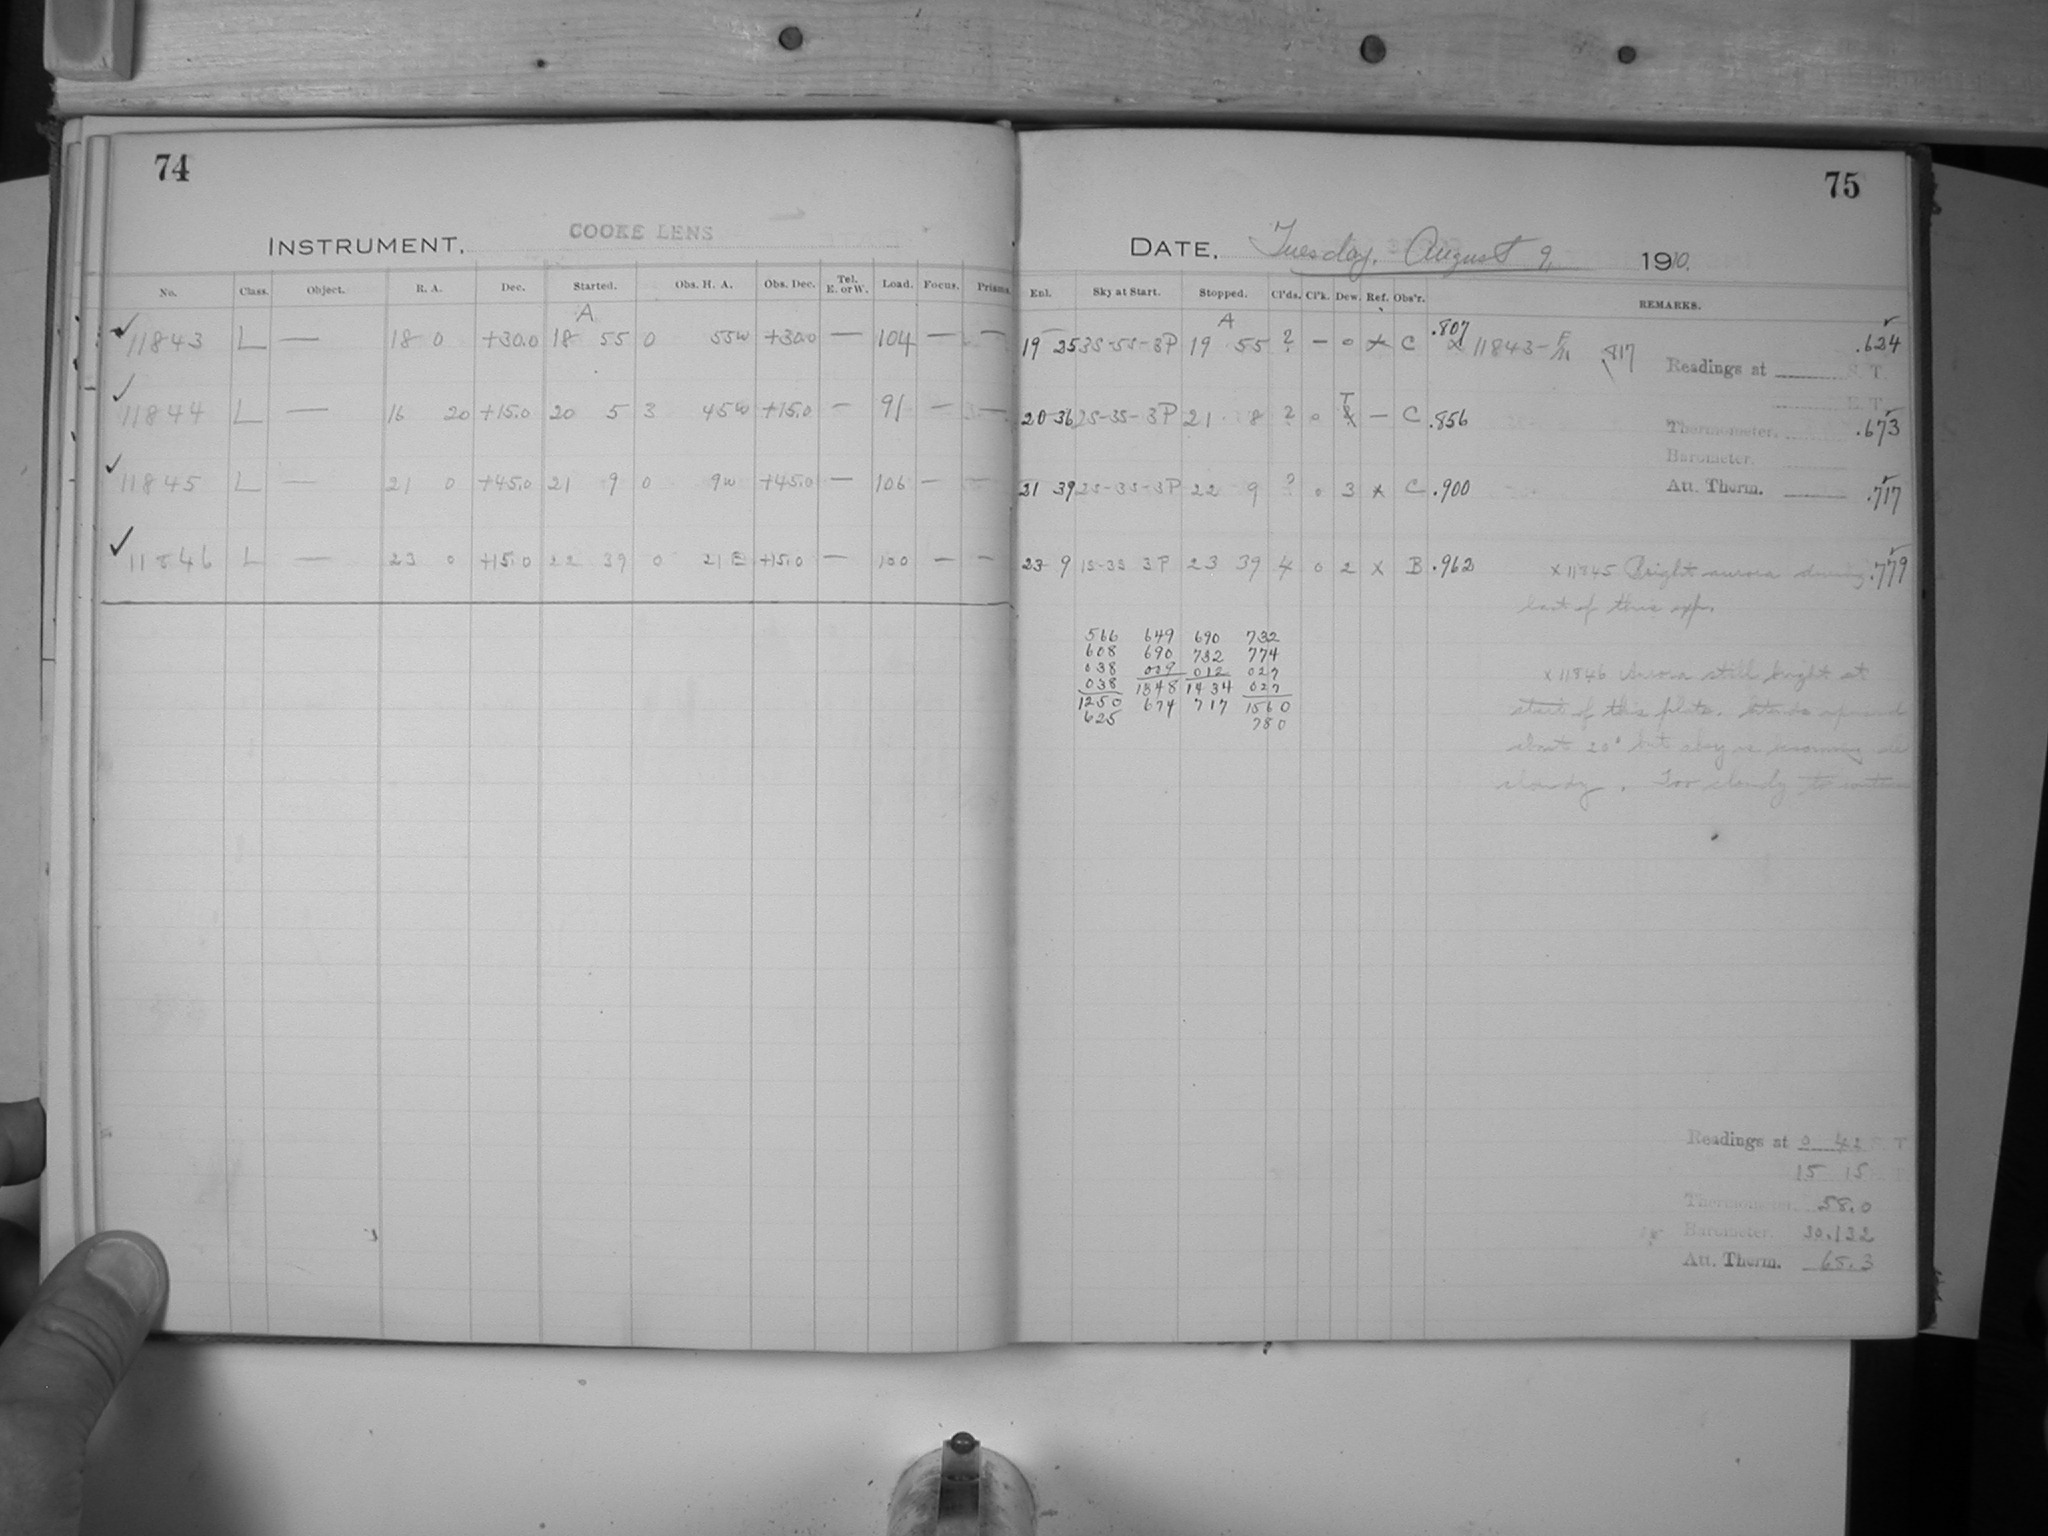 74
INSTRUMENT. COOKE LENS
No. Class. Object. R. A. Dec. Started. Obs. H. A. Obs. Dec. Tel. E. or W. Load. Focus. Prisms.
A
11843 L — 18 0 +30.0 18 55 0 55w +30.0 — 104 — —
11844 L — 16 20 +15.0 20 5 3 45w +15.0 — 91 — —
11845 L — 21 0 +45.0 21 9 0 9w +45.0 — 106 — —
11846 L — 23 0 +15.0 22 39 0 21E +15.0 — 100 — —
75
DATE. Tuesday, August 9, 1910.
Enl. Sky at Start. Stopped. Cl'ds. Cl'k. Dew. Ref. Obs'r. REMARKS.
A
19 25 3S-5S-3P 19 55 ? — 0 x C .807 x 11843 - 817 .624
Readings at S. T.
E. T.
20 36 2S-3S-3P 21 8 ? 0 — C .856 .673
Thermometer.
Barometer.
21 39 2S-3S-3P 22 9 ? 0 3 x C .900 .717
Att. Therm.
23 9 1S-3S 3P 23 39 4 0 2 x B .962 x 11845 Bright aurora during .779
last of this exp.
566 649 690 732
608 690 732 774
038 009 012 027
038 1348 1434 027
1250 674 717 1560
625 780
x 11846 Aurora still bright at
start of this plate.
about 20° but sky is becoming
cloudy. Too cloudy to continue
Readings at 0 42 S. T.
15 15
Thermometer. 58.0
Barometer. 30.132
Att. Therm. 65.3